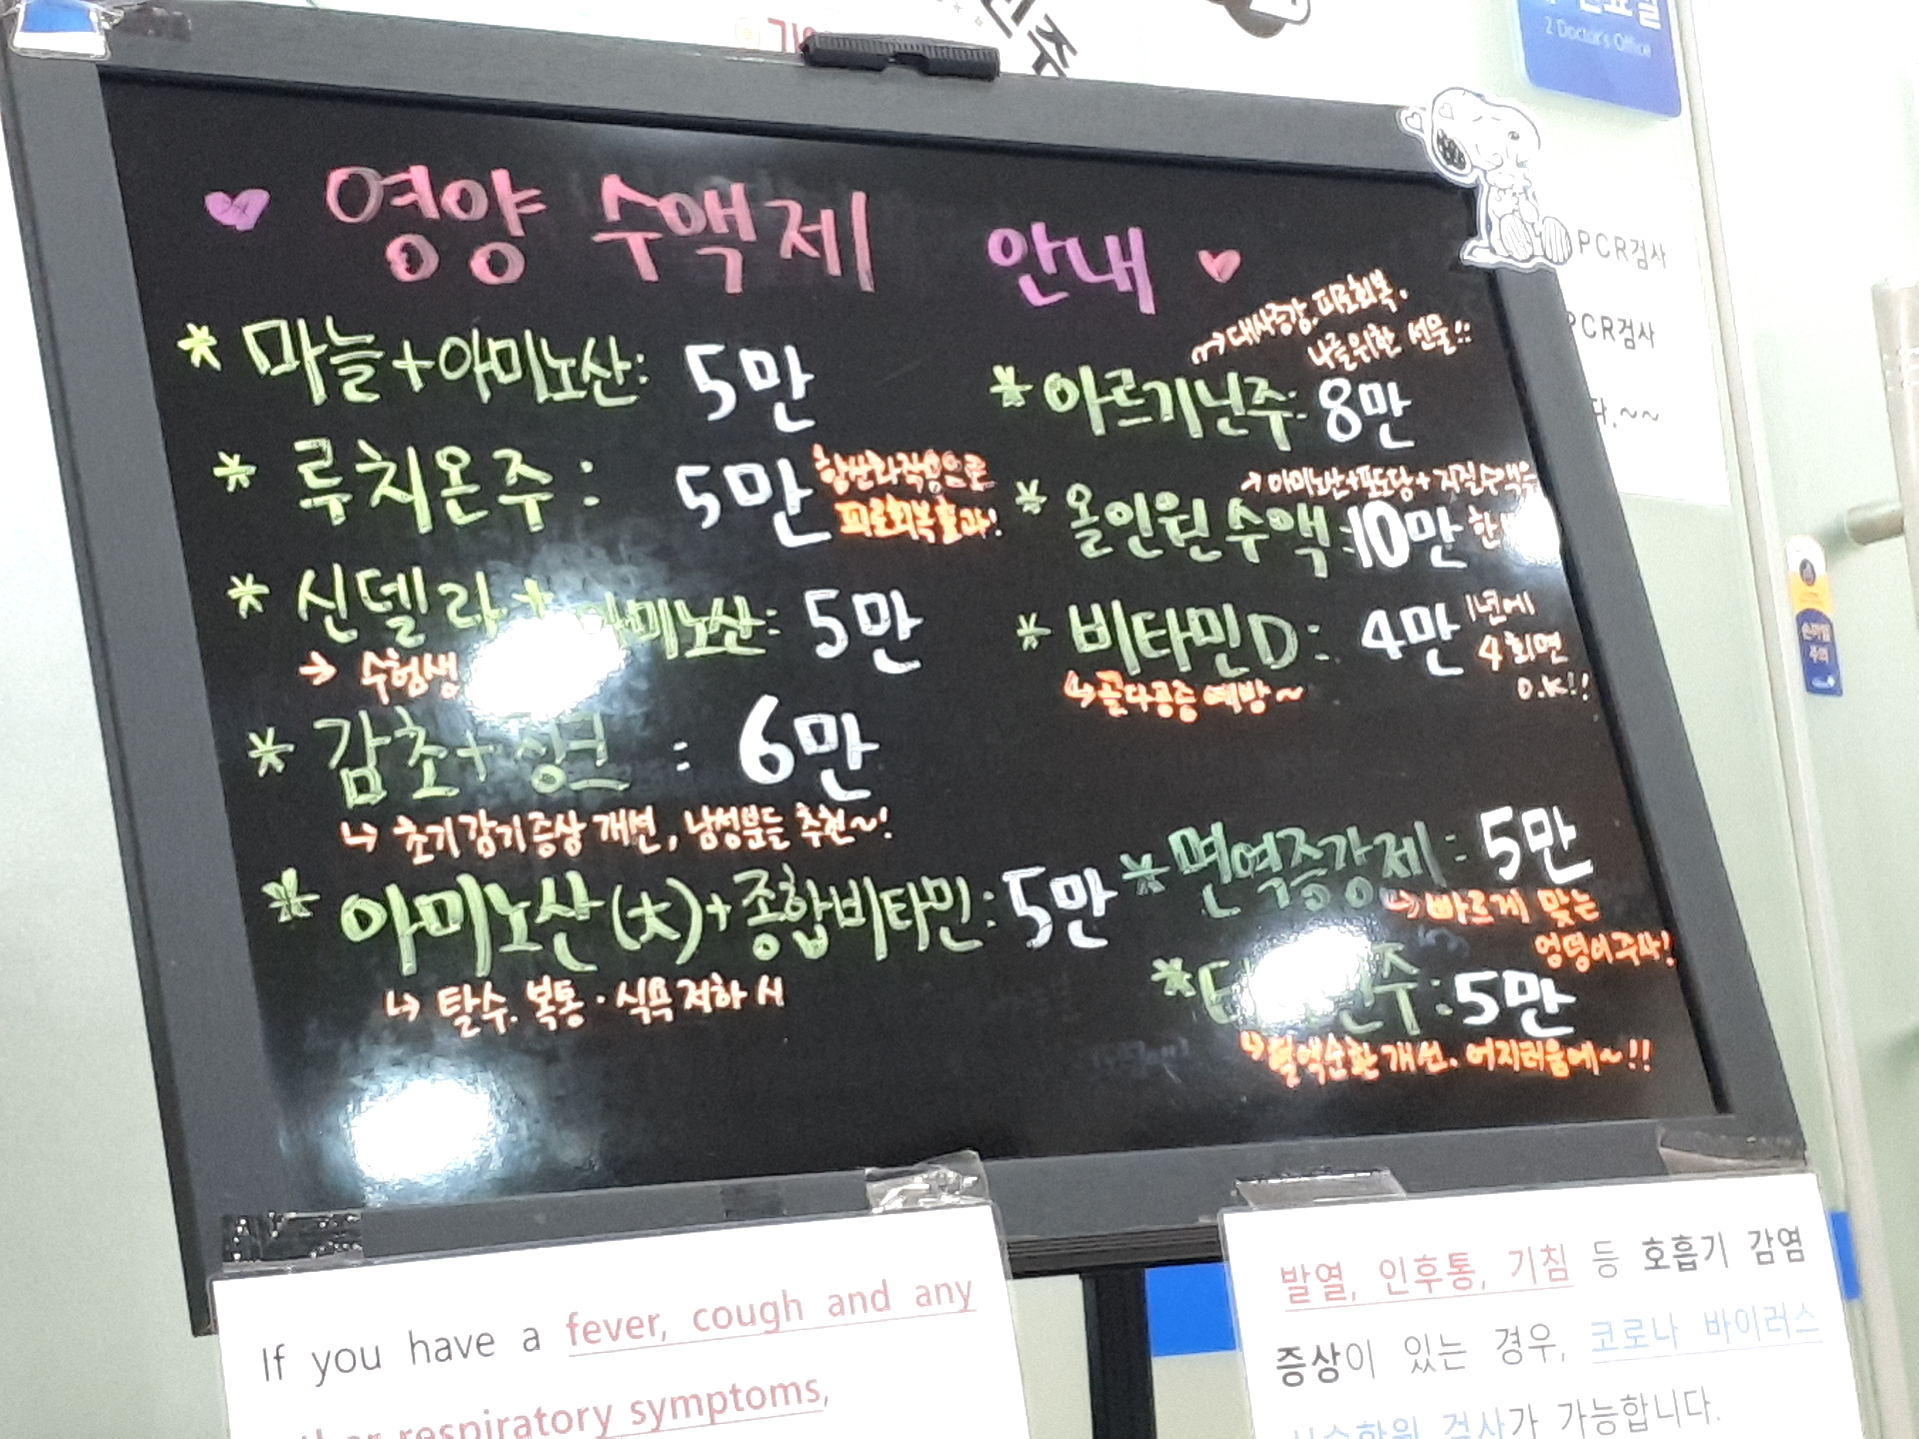 2 Doctor's Office
PCR검사
PCR검사
다.~~
영양 수액제 안내
* 마늘+아미노산: 5만
* 루치온주: 5만
항산화작용으로
피로회복효과!
* 신델라+아미노산: 5만
→ 수험생
* 감초+ : 6만
↳ 초기감기증상 개선, 남성분들 추천~!
* 아미노산(大)+종합비타민: 5만
↳ 탈수. 복통·식욕저하 시
→ 대사증강. 피로회복.
나를위한 선물!!
* 아르기닌주: 8만
→ 아미노산+포도당+지질수액을
* 올인원수액: 10만
* 비타민D: 4만
1년에
4회면
O.K!!
↳ 골다공증 예방~
* 면역증강제: 5만
↳ 빠르게 맞는
엉덩이주사!
주: 5만
↳ 혈액순환 개선. 어지러움에~!!
If you have a fever, cough and any
respiratory symptoms,
발열, 인후통, 기침 등 호흡기 감염
증상이 있는 경우, 코로나 바이러스
검사가 가능합니다.